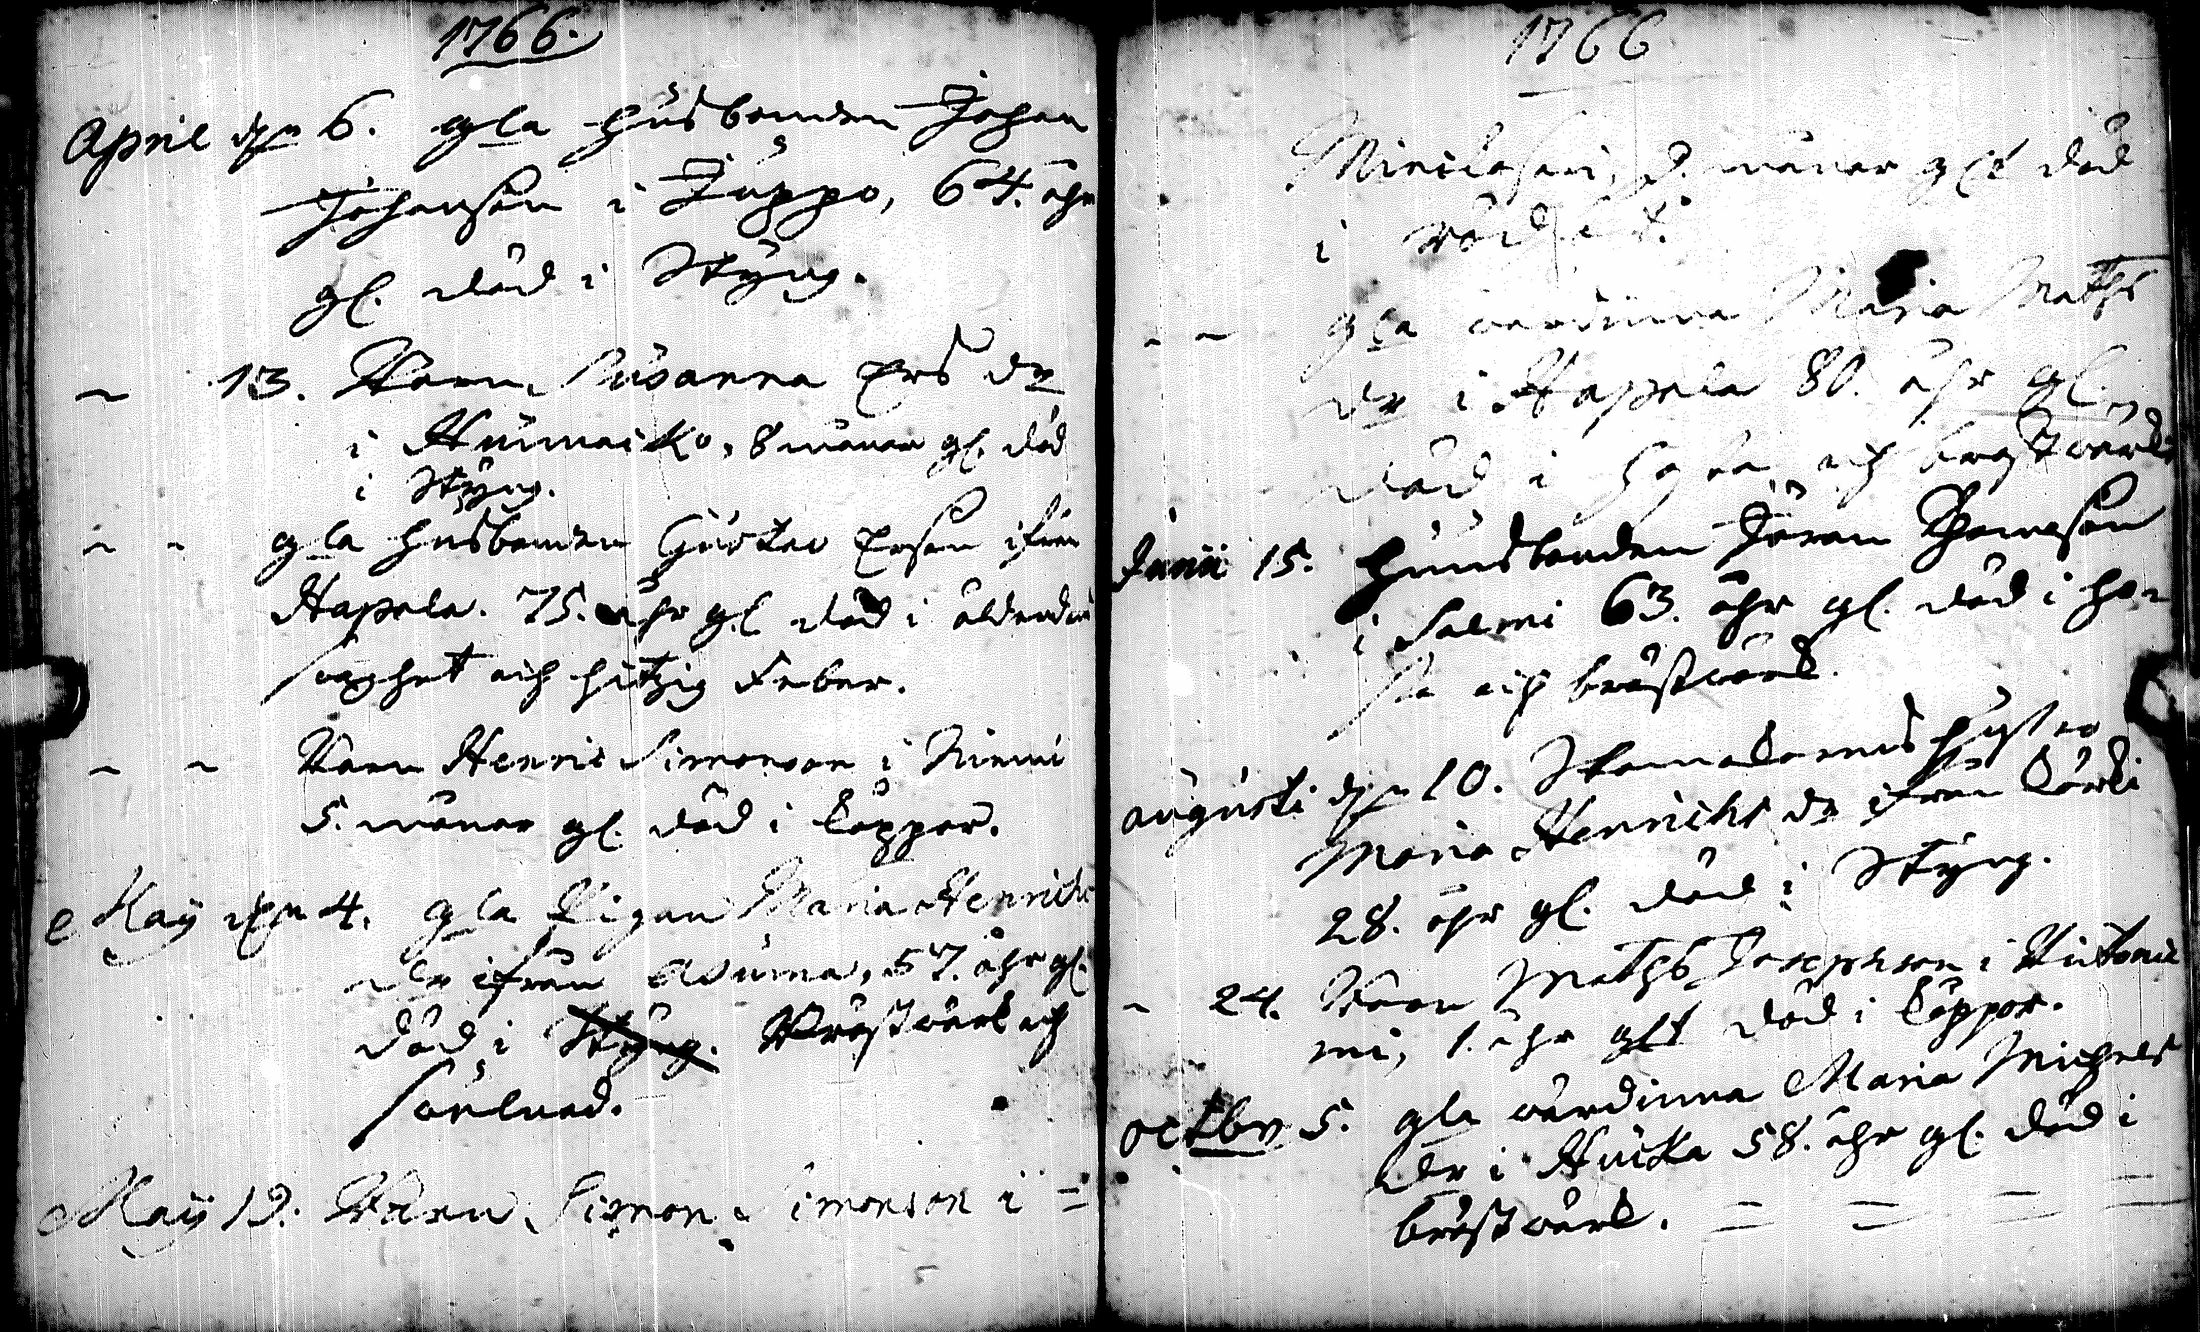 1766.
April den 6. gla husbonden Johan
Johansson i Juppo, 64. åhr
gl. död i Styng.
~ 13. Barn Susanna Ers dr
i Humaicko, 8 månar gl. död
i Styng.
~ ~ gla husbonden Gustav Ersson ifrån
Hapala. 75. åhr gl. död i ålderdoms
swaghet och hitzig Feber.
~ ~ Barn Henric Simonson i Niemi
5. månar gl. död i koppor.
May den 4. gla Pigan Maria Henrichs
dr ifrån 57. åhr gl.
död i Styng. Bröstwärk och
May 19. Barn Simon Simonson i =
1766
månar glt död
i
~ ~ gla wärdinna Maria Maths
dr i Hapala 80. åhr gl.
död i och bröstwärk
Junii 15. Husbonden Jöran Thomasson
i Salmi 63. åhr gl. död i ho-
sta och bröstwärk.
augusti den 10. hustro
Maria Henrichs dr ifrån Kärki
28. åhr gl. död i Styng.
~ 24. Barn Maths Josephson i
mi, 1. åhr glt död i koppor.
octbr 5. gla wärdinna Maria Michels
dr i Hucka 58. åhr gl. död i
bröstwärk. = = = =